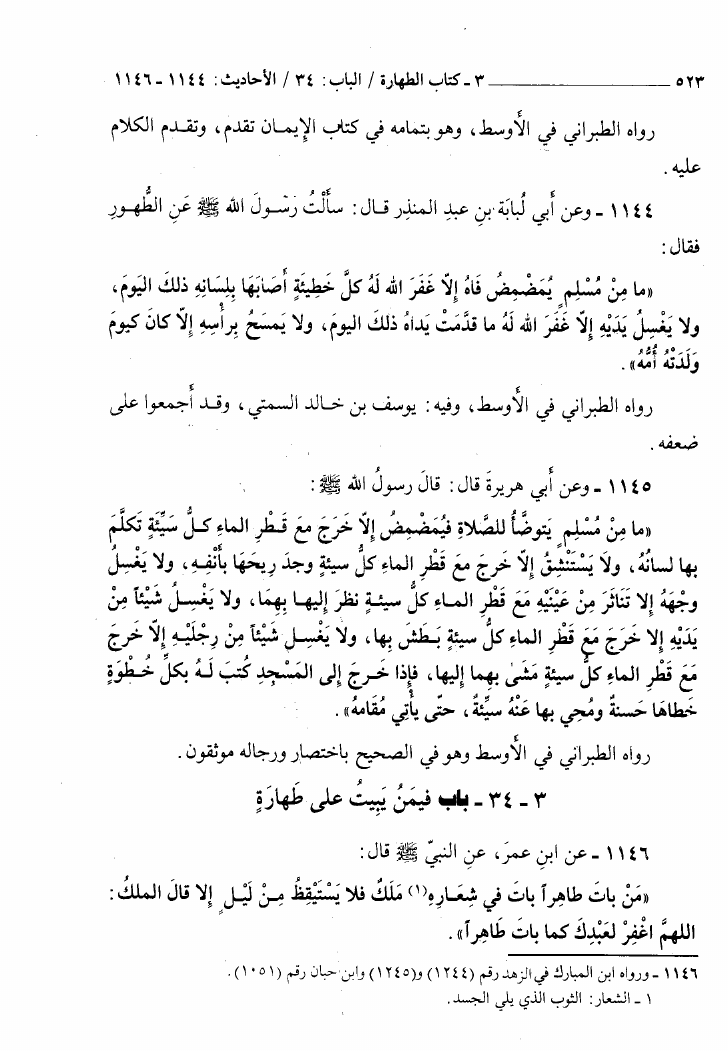 ٥٢٣ ــــــــــــــــــــ ٣ ـ كتاب الطهارة / الباب: ٣٤ / الأحاديث: ١١٤٤ ـ ١١٤٦
رواه الطبراني في الأوسط، وهو بتمامه في كتاب الإيمان تقدم، وتقدم الكلام
عليه.
١١٤٤ ـ وعن أبي لُبابَة بنِ عبدِ المنذِر قال: سألْتُ رَسُولَ الله ﷺ عَنِ الطُّهورِ
فقال:
«ما مِنْ مُسْلِمٍ يُمَضْمِضُ فَاهُ إلاّ غَفَرَ الله لَهُ كلَّ خَطِيئَةٍ أَصَابَهَا بِلِسَانِهِ ذلكَ اليَومَ،
ولا يَغْسِلُ يَدَيْهِ إلاّ غَفَرَ الله لَهُ ما قدَّمَتْ يَداهُ ذلكَ اليومَ، ولا يَمسَحُ بِرأسِهِ إلاّ كانَ كيومَ
وَلَدَتْهُ أُمُّهُ».
رواه الطبراني في الأوسط، وفيه: يوسف بن خالد السمتي، وقد أجمعوا على
ضعفه.
١١٤٥ ـ وعن أبي هريرةَ قال: قالَ رسولُ الله ﷺ:
«ما مِنْ مُسْلِمٍ يَتوضَّأُ للصَّلاةِ فيُمَضْمِضُ إلاّ خَرَجَ مع قَطْرِ الماءِ كلُّ سَيِّئَةٍ تَكلَّمَ
بها لسانُهُ، ولا يَسْتَنْشِقُ إلاّ خَرجَ مَعَ قَطْرِ الماءِ كلُّ سيئةٍ وجدَ رِيحَهَا بأَنْفِهِ، ولا يَغْسِلُ
وجْهَهُ إلا تَنَاثَرَ مِنْ عَيْنَيْهِ مَعَ قَطْرِ الماءِ كلُّ سيئةٍ نظَرَ إليها بِهِمَا، ولا يَغْسِلُ شَيْئاً مِنْ
يَدَيْهِ إلا خَرَجَ مَعَ قَطْرِ الماءِ كلُّ سيئةٍ بَطَشَ بِها، ولا يَغْسِلُ شَيْئاً مِنْ رِجْلَيْهِ إلاّ خَرجَ
مَعَ قَطْرِ الماءِ كلُّ سيئةٍ مَشَى بهما إليها، فإذا خَرجَ إلى المَسْجِدِ كُتبَ لَهُ بكلِّ خُطْوَةٍ
خَطاهَا حَسنةٌ ومُحِي بها عَنْهُ سيِّئةٌ، حتّى يأتِي مُقَامَهُ».
رواه الطبراني في الأوسط وهو في الصحيح باختصار ورجاله موثقون.
٣ ـ ٣٤ ـ باب فيمَنْ يَبِيتُ على طَهارَةٍ
١١٤٦ ـ عن ابنِ عمرَ، عنِ النبيِّ ﷺ قال:
«مَنْ باتَ طاهِراً باتَ في شِعَارِهِ(١) مَلَكٌ فلا يَسْتَيْقِظُ مِنْ لَيْلٍ إلا قالَ الملكُ:
اللهمَّ اغْفِرْ لعَبْدِكَ كما باتَ طَاهِراً».
١١٤٦ ـ ورواه ابن المبارك في الزهد رقم (١٢٤٤) و(١٢٤٥) وابن حبان رقم (١٠٥١).
١ ـ الشعار: الثوب الذي يلي الجسد.